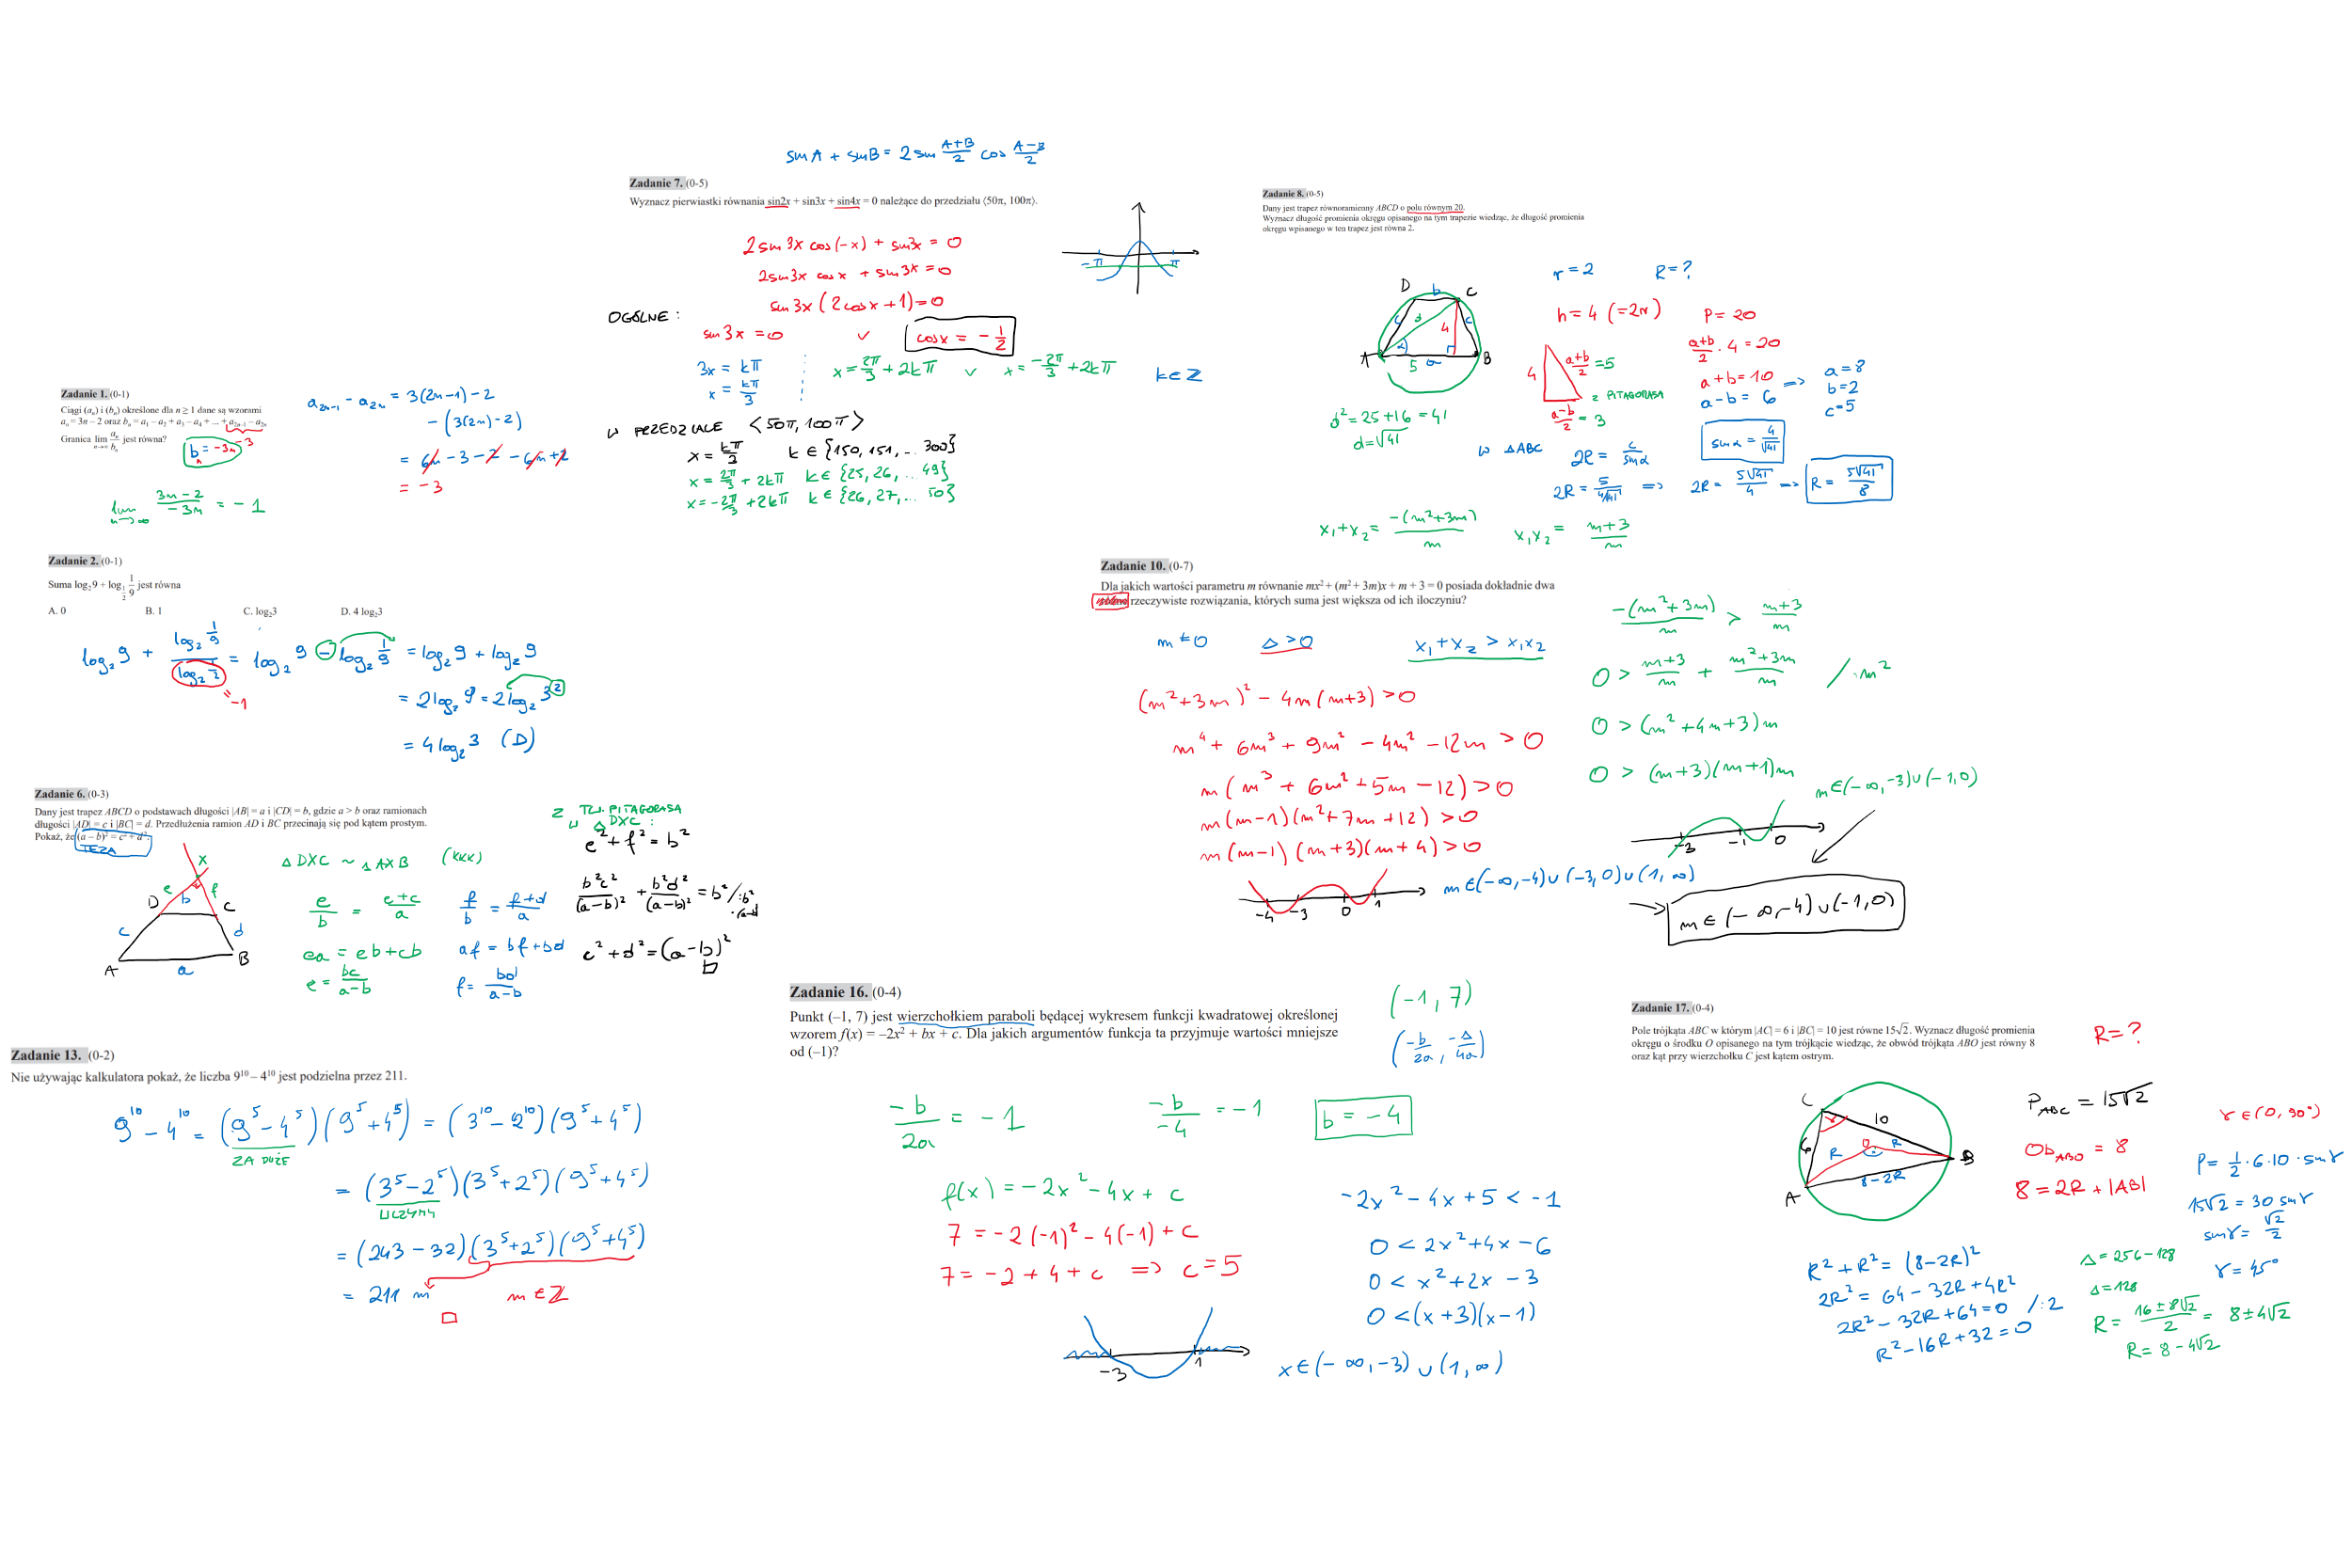 sin A + sin B = 2 sin (A+B)/2 cos (A−B)/2
Zadanie 7. (0-5)
Wyznacz pierwiastki równania sin2x + sin3x + sin4x = 0 należące do przedziału ⟨50π, 100π⟩.
2 sin 3x cos(−x) + sin3x = 0
2 sin 3x cos x + sin 3x = 0
sin 3x (2 cos x + 1) = 0
OGÓLNE :
sin 3x = 0 ∨ cos x = −1/2
3x = kπ
x = kπ/3
x = 2π/3 + 2kπ ∨ x = −2π/3 + 2kπ k ∈ Z
W PRZEDZIALE ⟨50π, 100π⟩
x = kπ/3 k ∈ {150, 151, ... 300}
x = 2π/3 + 2kπ k ∈ {25, 26, ... 49}
x = −2π/3 + 2kπ k ∈ {26, 27, ... 50}
−π π
Zadanie 8. (0-5)
Dany jest trapez równoramienny ABCD o polu równym 20.
Wyznacz długość promienia okręgu opisanego na tym trapezie wiedząc, że długość promienia
okręgu wpisanego w ten trapez jest równa 2.
r = 2 R = ?
D b C
c d 4 c
A α 5 a B
h = 4 (=2r) P = 20
(a+b)/2 · 4 = 20
a + b = 10 => a = 8
a − b = 6 b = 2
c = 5
4 (a+b)/2 = 5
Z PITAGORASA
(a−b)/2 = 3
d² = 25 + 16 = 41
d = √41
W △ABC 2R = c/sin α sin α = 4/√41
2R = 5/(4/√41) => 2R = 5√41/4 => R = 5√41/8
Zadanie 1. (0-1)
Ciągi (aₙ) i (bₙ) określone dla n ≥ 1 dane są wzorami
aₙ = 3n − 2 oraz bₙ = a₁ − a₂ + a₃ − a₄ + ... + a₂ₙ₋₁ − a₂ₙ
Granica lim n→∞ aₙ/bₙ jest równa?
−3
bₙ = −3n
a₂ₙ₋₁ − a₂ₙ = 3(2n−1) − 2
− (3(2n) − 2)
= 6n − 3 − 2 − 6n + 2
= −3
lim n→∞ (3n − 2)/(−3n) = −1
Zadanie 2. (0-1)
Suma log₂9 + log_(1/2) 1/9 jest równa
A. 0 B. 1 C. log₂3 D. 4 log₂3
log₂ 9 + (log₂ 1/9)/(log₂ 1/2) = log₂ 9 − log₂ 1/9 = log₂ 9 + log₂ 9
= −1
= 2 log₂ 9 = 2 log₂ 3²
= 4 log₂ 3 (D)
Zadanie 6. (0-3)
Dany jest trapez ABCD o podstawach długości |AB| = a i |CD| = b, gdzie a > b oraz ramionach
długości |AD| = c i |BC| = d. Przedłużenia ramion AD i BC przecinają się pod kątem prostym.
Pokaż, że (a − b)² = c² + d².
TEZA
X
e f
D b C
c d
A a B
△DXC ~ △AXB (KKK)
e/b = (e+c)/a
ea = eb + cb
e = bc/(a−b)
f/b = (f+d)/a
af = bf + bd
f = bd/(a−b)
Z TW. PITAGORASA
W △DXC :
e² + f² = b²
b²c²/(a−b)² + b²d²/(a−b)² = b² /:b² ·(a−b)
c² + d² = (a−b)²
Zadanie 10. (0-7)
Dla jakich wartości parametru m równanie mx² + (m² + 3m)x + m + 3 = 0 posiada dokładnie dwa
rzeczywiste rozwiązania, których suma jest większa od ich iloczyniu?
x₁ + x₂ = −(m²+3m)/m x₁x₂ = (m+3)/m
m ≠ 0 Δ > 0 x₁ + x₂ > x₁x₂
(m²+3m)² − 4m(m+3) > 0
m⁴ + 6m³ + 9m² − 4m² − 12m > 0
m(m³ + 6m² + 5m − 12) > 0
m(m−1)(m²+7m+12) > 0
m(m−1)(m+3)(m+4) > 0
−4 −3 0 1
m ∈ (−∞, −4) ∪ (−3, 0) ∪ (1, ∞)
−(m²+3m)/m > (m+3)/m
0 > (m+3)/m + (m²+3m)/m / ·m²
0 > (m²+4m+3)m
0 > (m+3)(m+1)m
m ∈ (−∞, −3) ∪ (−1, 0)
−3 −1 0
m ∈ (−∞, −4) ∪ (−1, 0)
Zadanie 13. (0-2)
Nie używając kalkulatora pokaż, że liczba 9¹⁰ − 4¹⁰ jest podzielna przez 211.
9¹⁰ − 4¹⁰ = (9⁵ − 4⁵)(9⁵ + 4⁵) = (3¹⁰ − 2¹⁰)(9⁵ + 4⁵)
ZA DUŻE
= (3⁵ − 2⁵)(3⁵ + 2⁵)(9⁵ + 4⁵)
LICZYMY
= (243 − 32)(3⁵ + 2⁵)(9⁵ + 4⁵)
= 211 m m ∈ Z
Zadanie 16. (0-4)
Punkt (−1, 7) jest wierzchołkiem paraboli będącej wykresem funkcji kwadratowej określonej
wzorem f(x) = −2x² + bx + c. Dla jakich argumentów funkcja ta przyjmuje wartości mniejsze
od (−1)?
(−1, 7)
(−b/2a, −Δ/4a)
−b/2a = −1 −b/−4 = −1 b = −4
f(x) = −2x² − 4x + c
7 = −2(−1)² − 4(−1) + c
7 = −2 + 4 + c => c = 5
−2x² − 4x + 5 < −1
0 < 2x² + 4x − 6
0 < x² + 2x − 3
0 < (x + 3)(x − 1)
−3 1
x ∈ (−∞, −3) ∪ (1, ∞)
Zadanie 17. (0-4)
Pole trójkąta ABC w którym |AC| = 6 i |BC| = 10 jest równe 15√2. Wyznacz długość promienia
okręgu o środku O opisanego na tym trójkącie wiedząc, że obwód trójkąta ABO jest równy 8
oraz kąt przy wierzchołku C jest kątem ostrym.
R = ?
C 10
6 γ O R
R B
A 8 − 2R
P_ABC = 15√2
Ob_ABO = 8
8 = 2R + |AB|
γ ∈ (0, 90°)
P = 1/2 · 6 · 10 · sin γ
15√2 = 30 sin γ
sin γ = √2/2
γ = 45°
R² + R² = (8−2R)²
2R² = 64 − 32R + 4R²
2R² − 32R + 64 = 0 /:2
R² − 16R + 32 = 0
Δ = 256 − 128
Δ = 128
R = (16 ± 8√2)/2 = 8 ± 4√2
R = 8 − 4√2